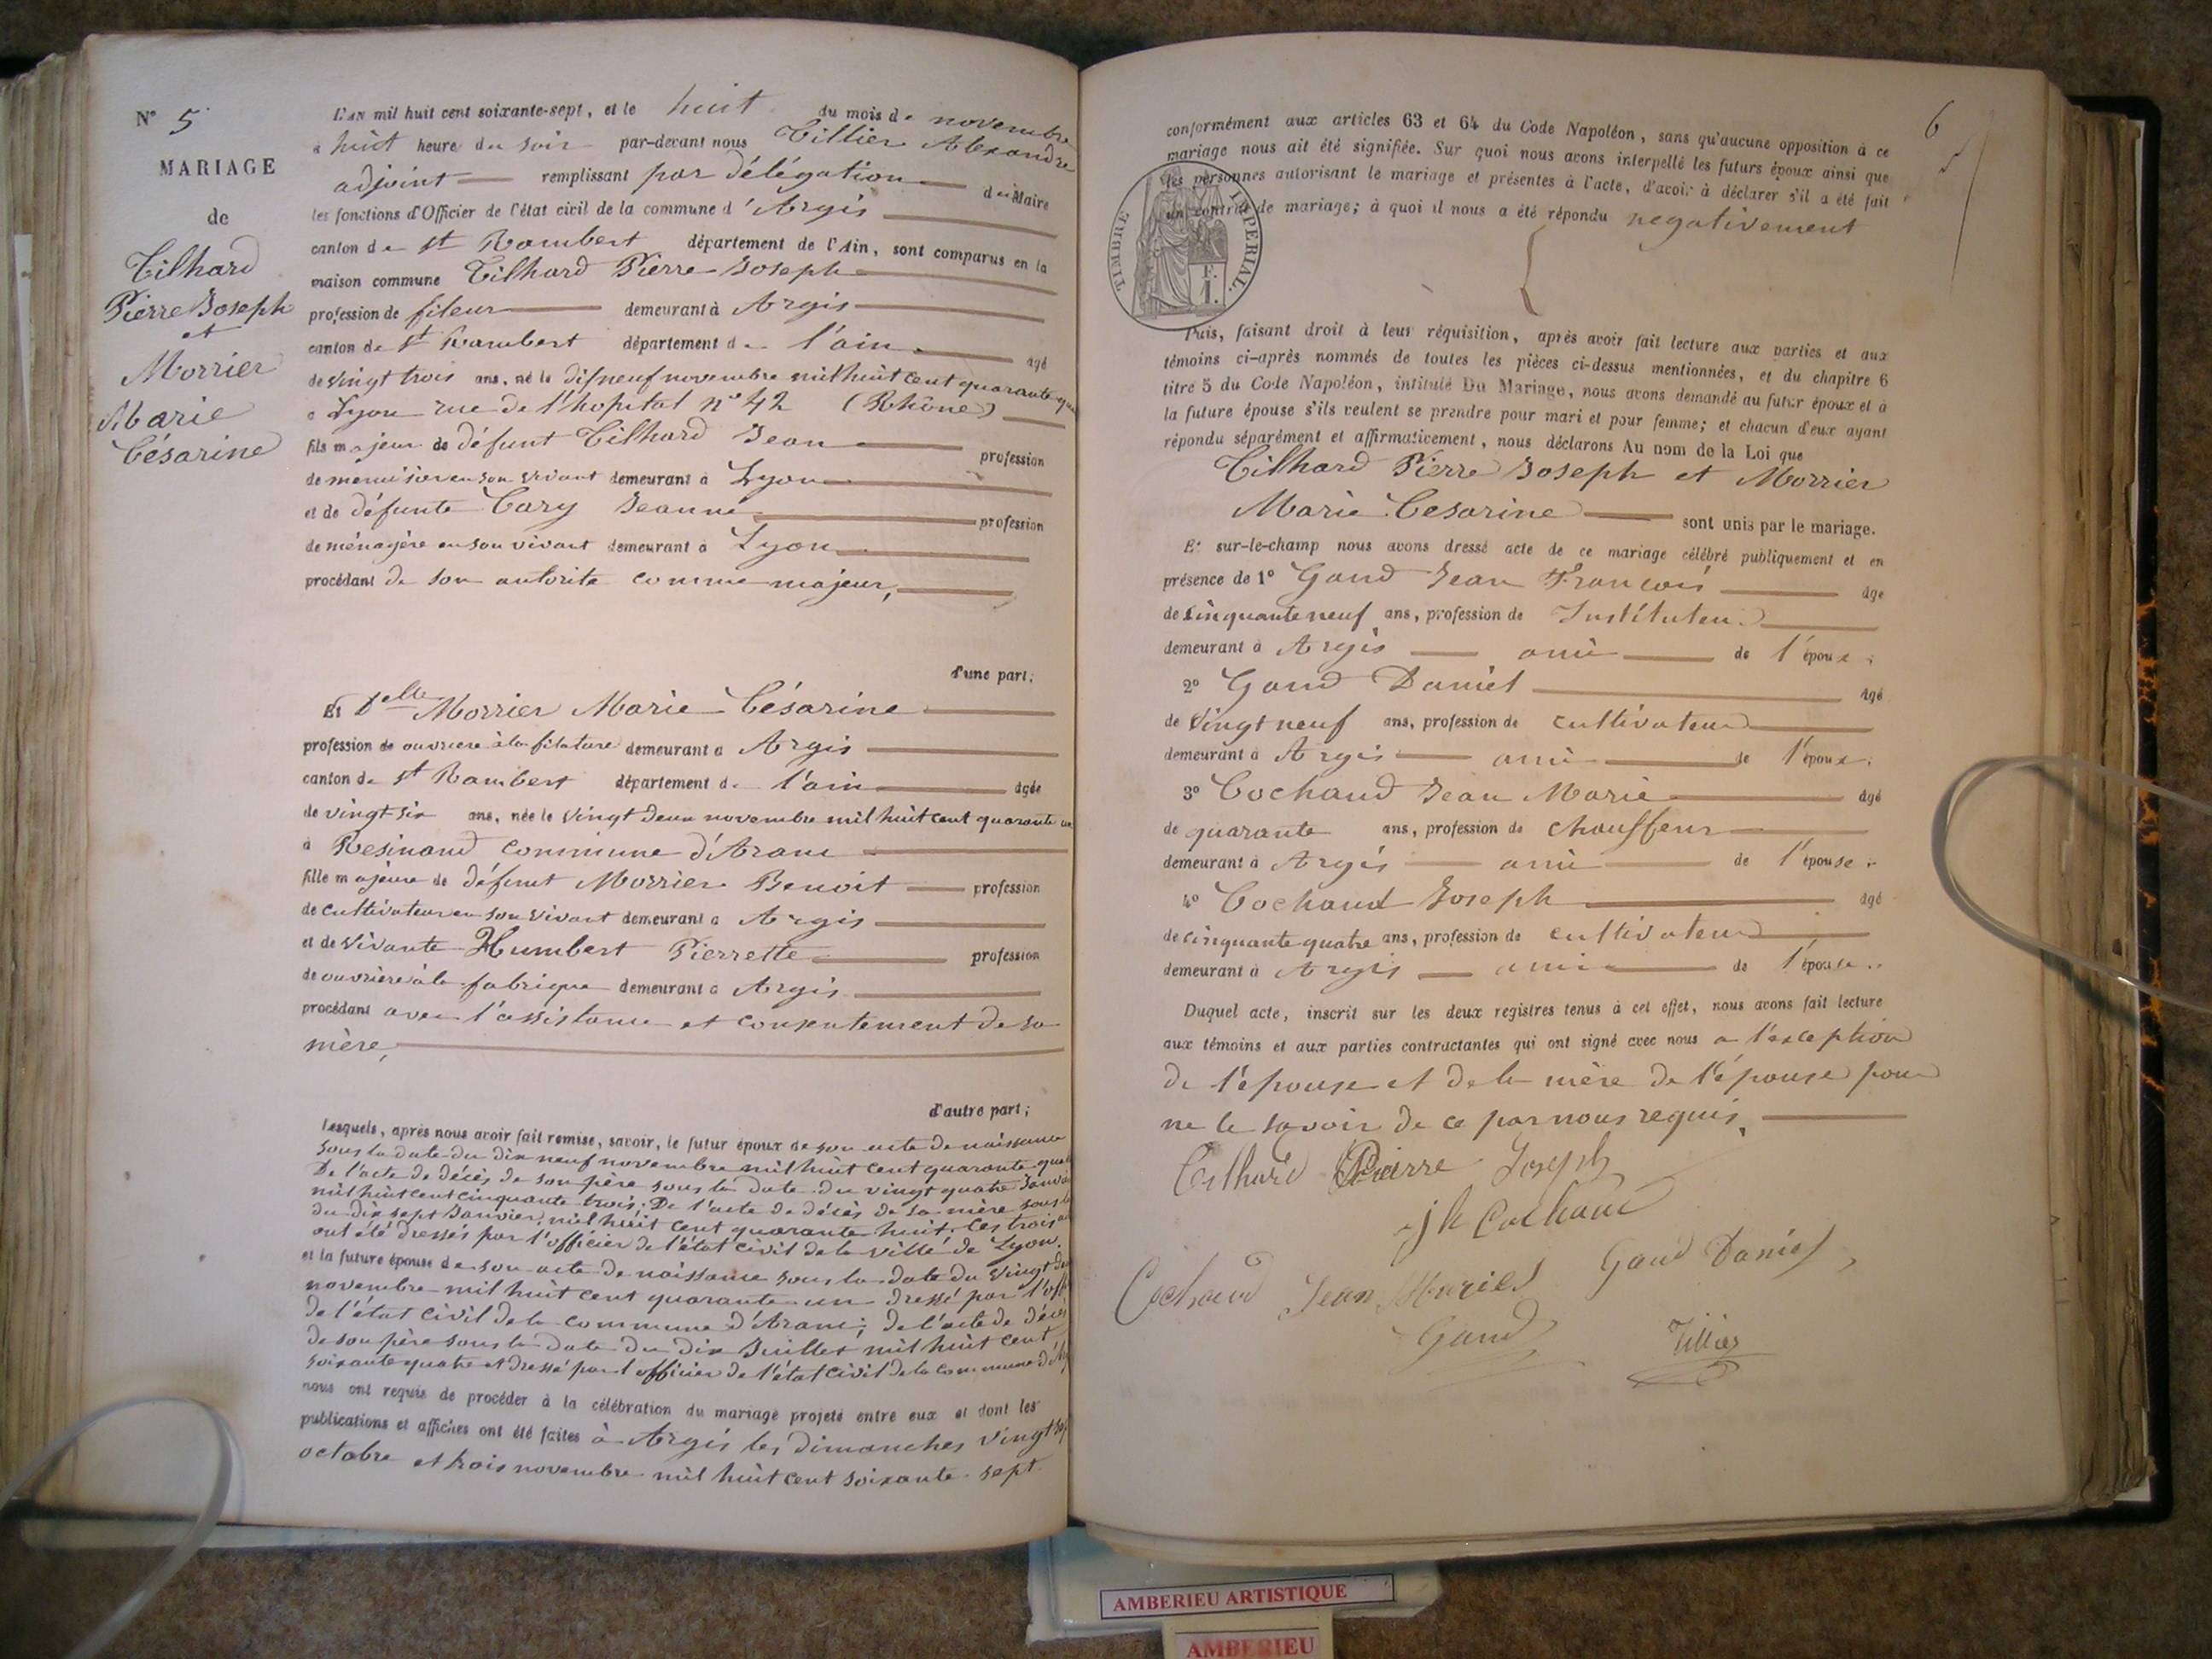 N° 5
MARIAGE
de
Tilhard
Pierre Joseph
et
Morrier
Marie
Césarine
L'AN mil huit cent soixante-sept, et le huit du mois de novembre
à huit heure du soir par-devant nous Tillier Alexandre
adjoint remplissant par délégation du Maire
les fonctions d'Officier de l'état civil de la commune d'Argis
canton de St Rambert département de l'Ain, sont comparus en la
maison commune Tilhard Pierre Joseph
profession de fileur demeurant à Argis
canton de St Rambert département de l'ain âgé
de vingt trois ans, né le dixneuf novembre mil huit cent quarante qua
à Lyon rue de l'hopital n° 42 (Rhône)
fils majeur de défunt Tilhard Jean profession
de menuisier en son vivant demeurant à Lyon
et de défunte Cary Jeanne profession
de ménagère en son vivant demeurant à Lyon
procédant de son autorité comme majeur,
d'une part;
Et Delle Morrier Marie Césarine
profession de ouvrière à la filature demeurant à Argis
canton de St Rambert département de l'ain âgée
de vingt six ans, née le vingt deux novembre mil huit cent quarante un
à Resinand commune d'Aranc
fille majeure de défunt Morrier Benoit profession
de cultivateur en son vivant demeurant à Argis
et de vivante Humbert Pierrette profession
de ouvrière à la fabrique demeurant à Argis
procédant avec l'assistance et consentement de sa
mère,
d'autre part;
Lesquels, après nous avoir fait remise, savoir, le futur époux de son acte de naissance
sous la date du dix neuf novembre mil huit cent quarante quat
De l'acte de décès de son père sous la date du vingt quatre Janvi
mil huit cent cinquante trois; De l'acte de décès de sa mère sous la
du dix sept Janvier mil huit cent quarante huit. Ces trois
ont été dressés par l'officier de l'état civil de la ville de Lyon.
et la future épouse de son acte de naissance sous la date du vingt deu
novembre mil huit cent quarante un dressé par l'off
de l'état civil de la commune d'Aranc; de l'acte de décès
de son père sous la date du dix Juillet mil huit cent
soixante quatre et dressé par l'officier de l'état civil de la commune d'Ar
nous ont requis de procéder à la célébration du mariage projeté entre eux et dont les
publications et affiches ont été faites à Argis les dimanches vingt sept
octobre et trois novembre mil huit cent soixante sept
6
conformément aux articles 63 et 64 du Code Napoléon, sans qu'aucune opposition à ce
mariage nous ait été signifiée. Sur quoi nous avons interpellé les futurs époux ainsi que
les personnes autorisant le mariage et présentes à l'acte, d'avoir à déclarer s'il a été fait
un contrat de mariage; à quoi il nous a été répondu negativement
TIMBRE IMPERIAL.
F.
1.
Puis, faisant droit à leur réquisition, après avoir fait lecture aux parties et aux
témoins ci-après nommés de toutes les pièces ci-dessus mentionnées, et du chapitre 6
titre 5 du Code Napoléon, intitulé Du Mariage, nous avons demandé au futur époux et à
la future épouse s'ils veulent se prendre pour mari et pour femme; et chacun d'eux ayant
répondu séparément et affirmativement, nous déclarons Au nom de la Loi que
Tilhard Pierre Joseph et Morrier
Marie Cesarine sont unis par le mariage.
Et sur-le-champ nous avons dressé acte de ce mariage célébré publiquement et en
présence de 1° Gaud Jean François âgé
de cinquante neuf ans, profession de Instituteur
demeurant à Argis ami de l'époux;
2° Gaud Daniel âgé
de vingt neuf ans, profession de cultivateur
demeurant à Argis ami de l'époux;
3° Cochaud Jean Marie âgé
de quarante ans, profession de chauffeur
demeurant à Argis ami de l'épouse;
4° Cochaud Joseph âgé
de cinquante quatre ans, profession de cultivateur
demeurant à Argis ami de l'épouse.
Duquel acte, inscrit sur les deux registres tenus à cet effet, nous avons fait lecture
aux témoins et aux parties contractantes qui ont signé avec nous a l'exception
de l'épouse et de la mère de l'épouse pour
ne le savoir de ce par nous requis.
Tilhard Pierre Joseph
jh Cochaud
Cochaud Jean Marie Gaud Daniel
Gaud Tillier
AMBERIEU ARTISTIQUE
AMBERIEU